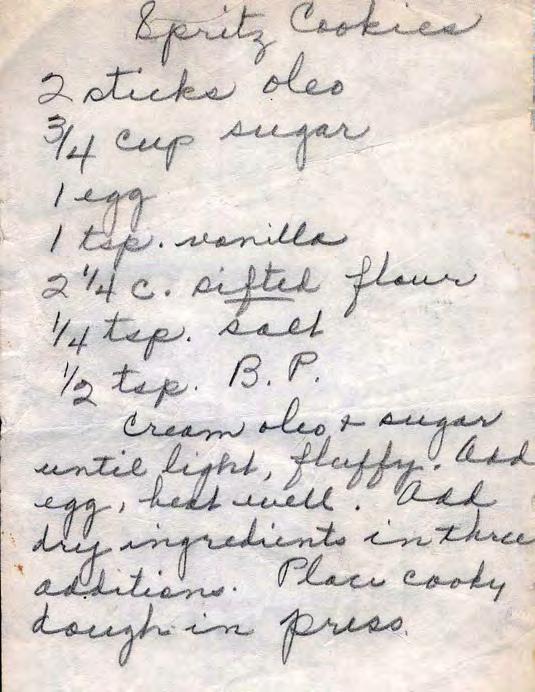 Spritz Cookies
2 sticks oleo
3/4 cup sugar
1 egg
1 tsp. vanilla
2 1/4 c. sifted flour
1/4 tsp. salt
1/2 tsp. B.P.
Cream oleo + sugar
until light, fluffy. Add
egg, beat well. Add
dry ingredients in three
additions. Place cooky
dough in press.